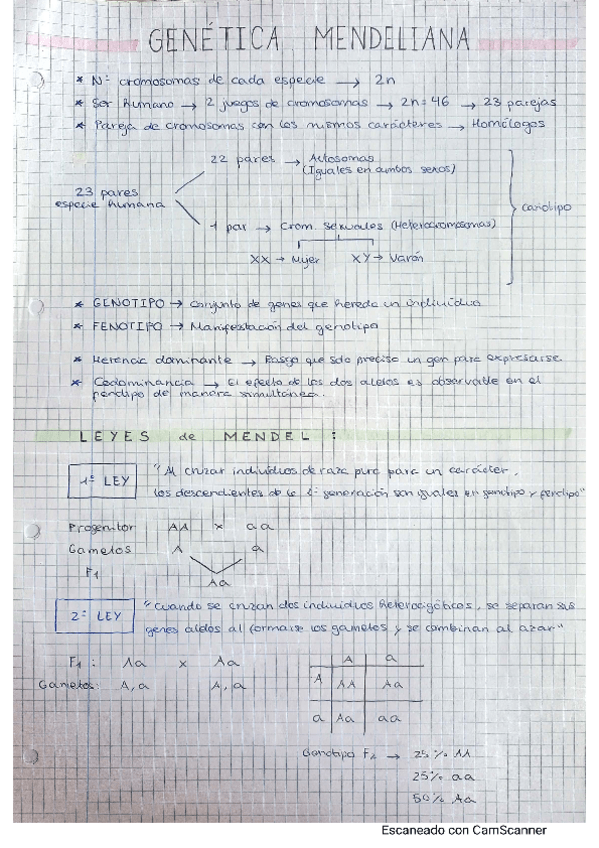 GENÉTICA MENDELIANA
* Nº cromosomas de cada especie → 2n
* Ser humano → 2 juegos de cromosomas → 2n = 46 → 23 parejas
* Pareja de cromosomas con los mismos carácteres → Homólogos
22 pares → Autosomas
(Iguales en ambos sexos)
23 pares
especie humana
cariotipo
1 par → Crom. sexuales (Heterocromosomas)
XX → Mujer XY → Varón
* GENOTIPO → Conjunto de genes que hereda un individuo
* FENOTIPO → Manifestación del genotipo
* Herencia dominante → Rasgo que solo precisa un gen para expresarse.
* Codominancia → El efecto de los dos alelos es observable en el
fenotipo de manera simultánea.
LEYES de MENDEL :
1º LEY
"Al cruzar individuos de raza pura para un carácter,
los descendientes de la 1º generación son iguales en genotipo y fenotipo"
Progenitor AA x aa
Gametos A a
F1
Aa
2º LEY
"Cuando se cruzan dos individuos heterocigóticos, se separan sus
genes alelos al formarse los gametos y se combinan al azar"
F1 : Aa x Aa
Gametos: A, a A, a
A a
A AA Aa
a Aa aa
Genotipo F2 → 25% AA
25% aa
50% Aa
Escaneado con CamScanner